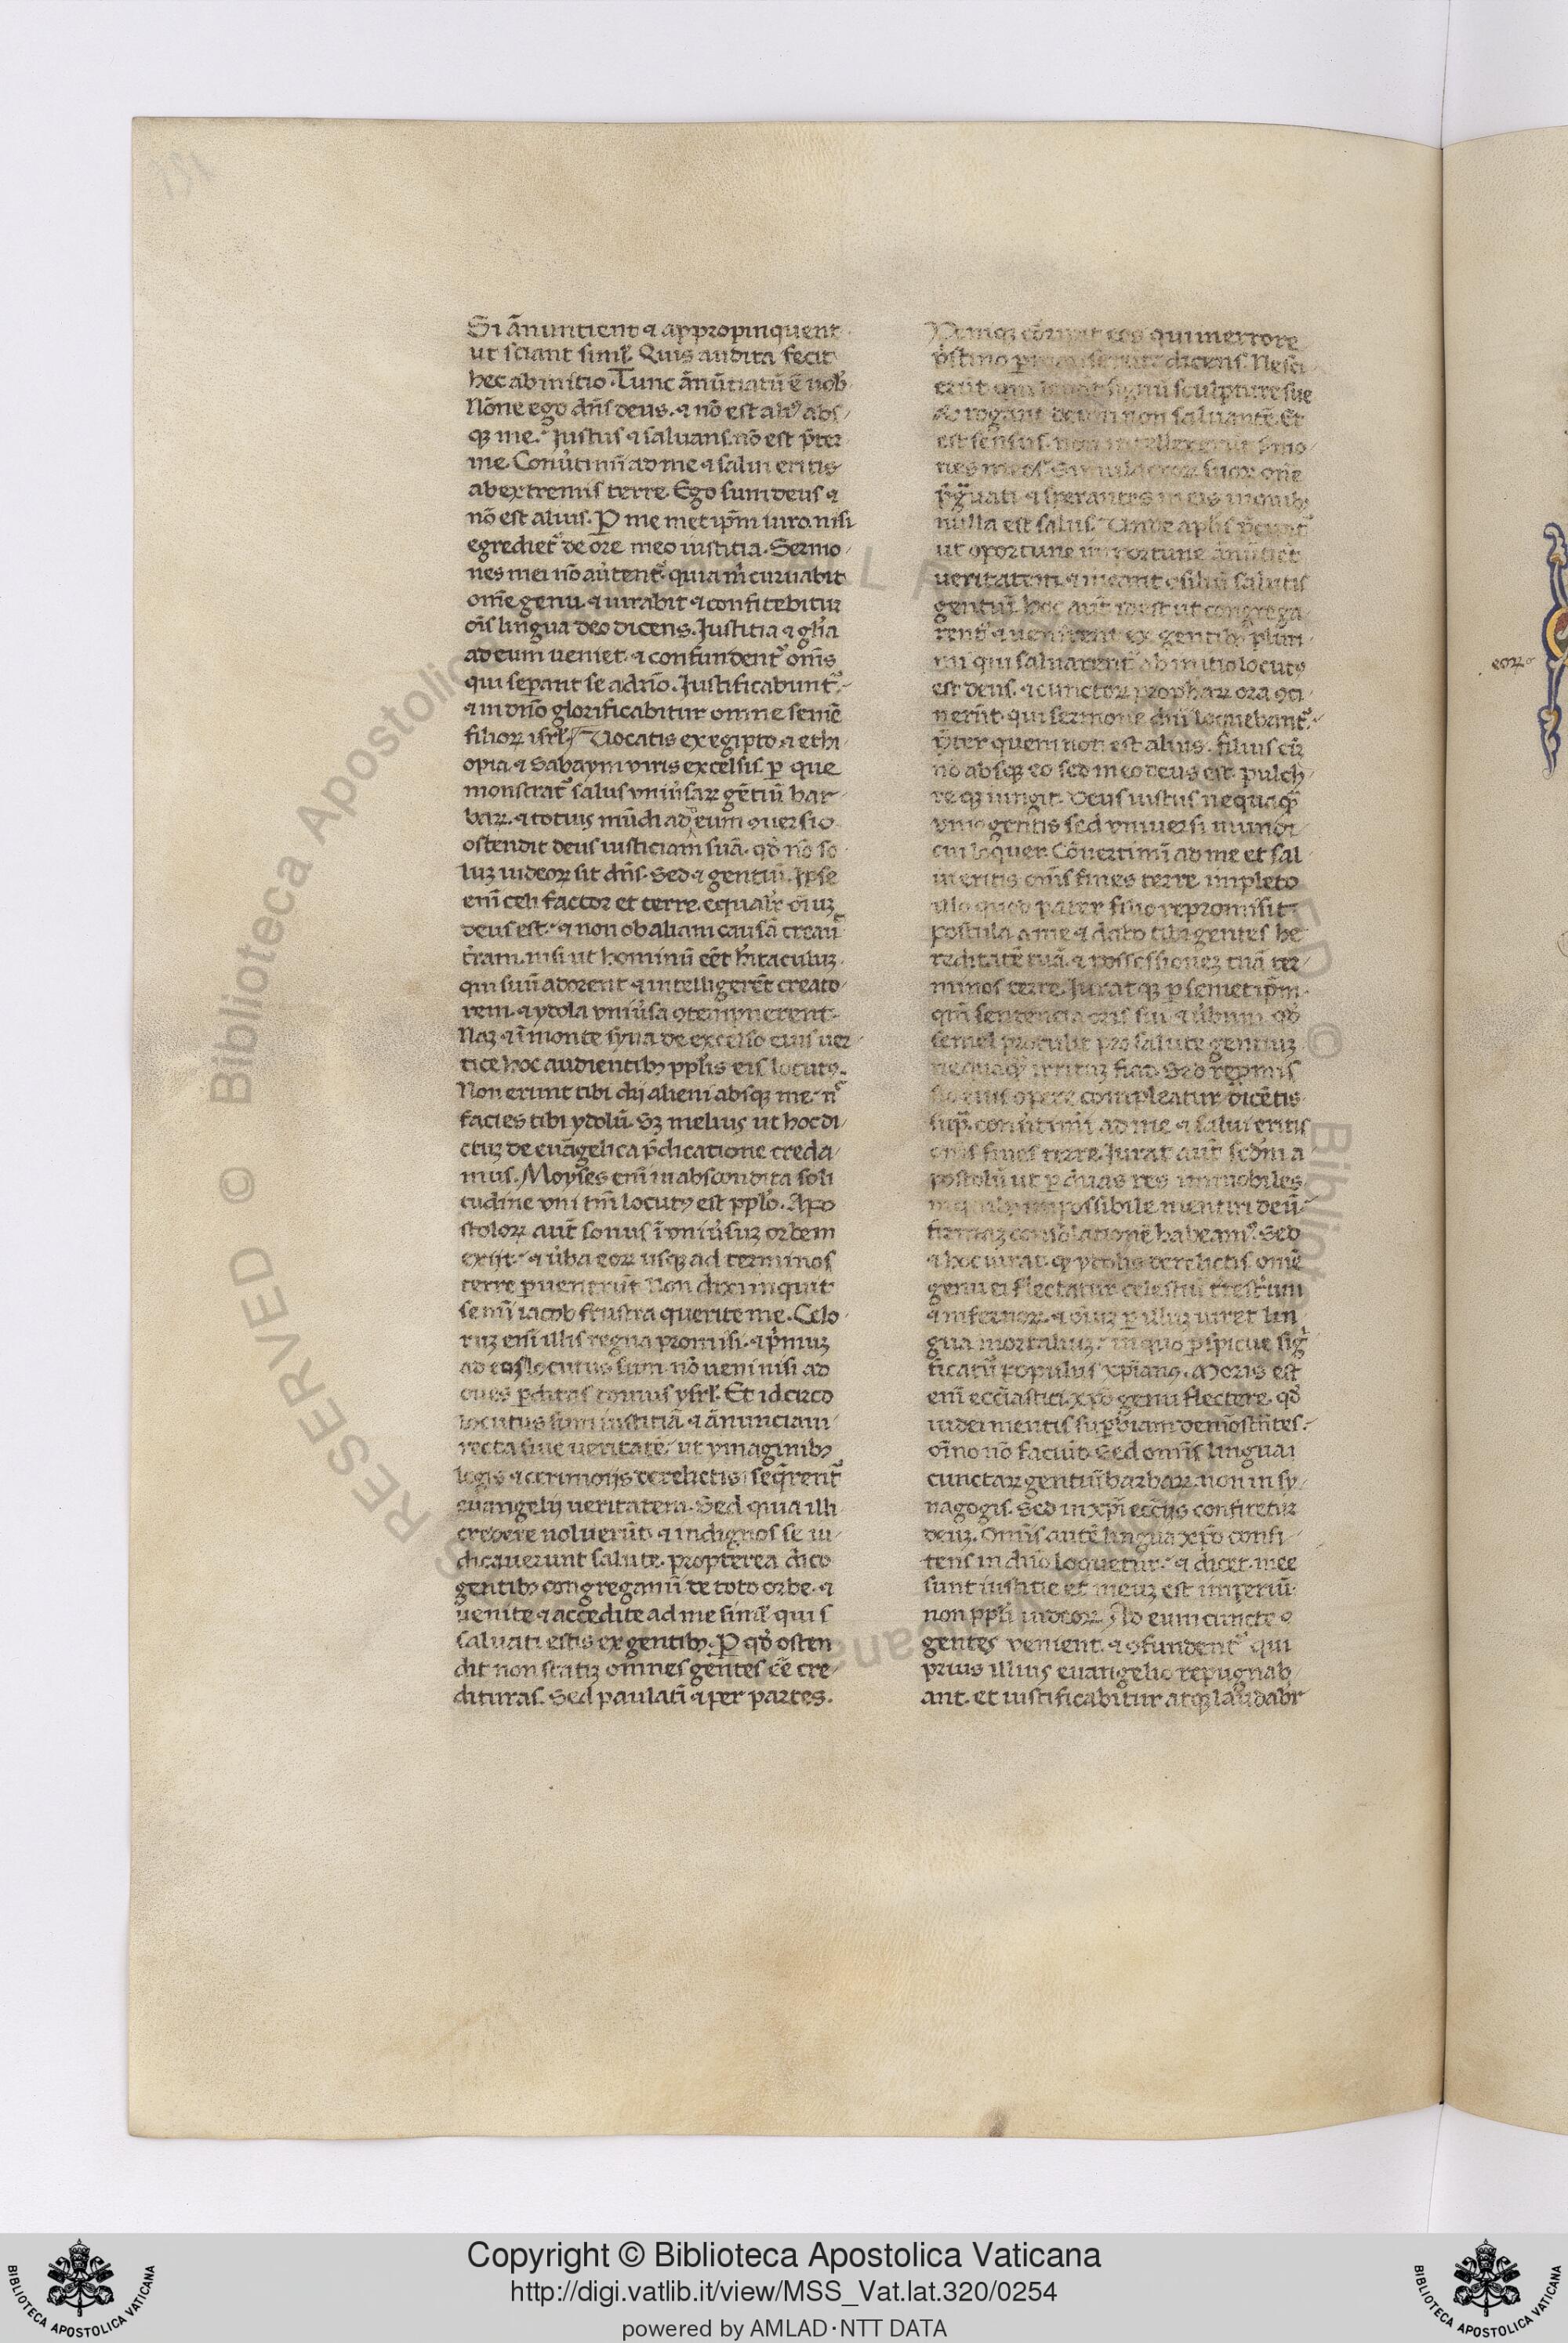 Si ānuntient ⁊ appropinquent
ut sciant simłˡ. Quis audita fecit
hec ab initio. Tunc ānūtiatū ē uob̵
Nōne ego dn̄s deus. ⁊ nō est aliꝰ abs/
qꝫ me. Justus ⁊ saluans. nō est p̄ter
me. Conu̓timī ad me ⁊ salui eritis
ab extremis terre. Ego sum deus ⁊
nō est alius. P me met ip̄m iuro. nisi
egrediet̉ de ore meo iustitia. Sermo/
nes mei nō au̓tent̉. quia m̄ curuabit
om̄e genu. ⁊ iurabit ⁊ confitebitur
oīs lingua deo dicens. Justitia ⁊ glīa
ad eum ueniet. ⁊ confundent̉ om̄s
qui sep̲ant se ad nō. Justificabunt̉.
⁊ in dn̄o glorificabitur omne semē
filioꝝ isrl̄. Uocatis ex egipto ⁊ ethi/
opia ⁊ Sabaym viris excelsis. ꝑ que
monstrat̉ salus vniu̓saꝝ gētiū bar/
baꝝ. ⁊ totius mūdi ad eum ꝯuersio
ostendit deus iusticiam suā. qd̓ nō so
luꝫ iudeoꝝ sit dn̄s. Sed ⁊ gentiū. Ipse
enī celi factor et terre. equalr̄ oīuꝫ
deus est. ⁊ non ob aliam causā creau̓
t̓ram. nisi ut hominū eēt h̓itaculuꝫ.
qui suū adorent ⁊ intelligerēt creato/
rem. ⁊ ydola vniu̓sa ꝯtempnerent.
Naꝫ ⁊ ī monte syna de excelso eius uer
tice hoc audientibꝫ ppl̓is eis locutꝰ.
Non erunt tibi dij alieni absqꝫ me. nō
facies tibi ydolū. Sꝫ melius ut hoc di/
ctuꝫ de euāgelica p̄dicatione creda/
mus. Moyses enī in abscondita soli
tudine vni tm̄ locutꝰ est ppl̓o. Apo
stoloꝝ aut̄ sonus ī vniu̓suꝫ orbem
exijt. ⁊ u̓ba eoꝝ usqꝫ ad terminos
terre ꝑuenerūt. Non dixi inquit
semī iacob frustra querite me. Celo/
ruꝫ enī illis regna promisi. ⁊ p̓muꝫ
ad eos locutus sum. nō ueni nisi ad
oues ꝑditas domus ysrl̄. Et idcirco
locutus sum iustitiā ⁊ ānunciaui
recta siue ueritatē. ut ymaginibꝫ
legis ⁊ cerimonijs derelictis seq̄rent̉
euangelij ueritatem. Sed quia illi
credere noluerūt. ⁊ indignos se iu/
dicauerunt salute. propterea dico
gentibꝫ congreganī de toto orbe. ⁊
uenite ⁊ accedite ad me siml̄ qui s
saluati estis ex gentibꝫ. P qd̓ osten
dit non statiꝫ omnes gentes eē cre/
dituras. Sed paulatī ⁊ per partes.
eos qui in errore
dicens. Nesci
erūt qui signū sculpture sue
⁊ rogant deum non saluantē. Et
est sensus. non intellexerūt s̓mo/
nes meos. Simulacroꝝ suoꝝ
⁊ sperantes in eis in quibꝫ
nulla est salus. Unde apl̓is
ut oportune importune ānūtiēt
ueritatem. ⁊ ineant ꝯsiliū salutis
gentiū. hoc aut̄ id est ut congrega
rent̉ ⁊ uenirent ex gentibꝫ pluri
mi qui saluarent̉. ab initio locutꝰ
est deus. ⁊ cunctoꝝ prophaꝝ ora
qui sermone dn̄i loquebant̉.
p̄ter quem non est alius. filius
nō absqꝫ eo sed in eo deus est. pulch/
re qꝫ iungit. Deus iustus nequaqꝫ
vnius gentis sed vniuersi mundi
cui loquer. Cōuertimī ad me et sal
ui eritis om̄s fines terre. impleto
illo quod pater filio repromisit
postula a me ⁊ dabo tibi gentes he
reditatē tuā. ⁊ possessioneꝫ tuā ter/
minos terre. Juratqꝫ ꝑ semetip̄m.
qm̄ sentencia oris sui ⁊ u̓bum qd̓
semel protulit pro salute gentiuꝫ
nequaqꝫ irrituꝫ fiat. Sed
sio eius opere compleatur. dicētis
sup̄. conu̓timī ad me ⁊ salui eritis
om̄s fines terre. Jurat aut̄ sedm̄ a
postolū ut ꝑ duas res immobiles
in quibꝫ impossibile mentiri deū.
firmaꝫ consolationē habeamꝰ. Sed
⁊ hoc iurat. qꝫ ydolis derelictis om̄e
genu ei flectatur celestiū t̓restriū
⁊ infernoꝝ. ⁊ oīuꝫ ꝑ illuꝫ iuret lin
gua mortaliuꝫ. in quo ꝑspicue sig
ficatū populus xp̄ianꝰ. Moris est
enī ecclīastici xp̄o genu flectere. qd̓
iudei mentis suꝑbiam demōstn̄tes.
oīno nō faciūt. Sed om̄is lingua
cunctaꝝ gentiū barbaꝝ. non in sy/
nagogis. Sed in xp̄i ecclijs confitetur
deuꝫ. Om̄is autē lingua xp̄o confi/
tens in dn̄o loquetur. ⁊ dicet. mee
sunt iustitie et meuꝫ est imperiū.
non ppl̓i iudeoꝝ. Ad eum cuncte
gentes venient. ⁊ ꝯfundent̉ qui
prius illius euangelio repugnab/
ant. et iustificabitur atqꝫ laudabr̄
eoꝝ
Copyright © Biblioteca Apostolica Vaticana
http://digi.vatlib.it/view/MSS_Vat.lat.320/0254
powered by AMLAD·NTT DATA
BIBLIOTECA APOSTOLICA VATICANA
BIBLIOTECA APOSTOLICA VATICANA